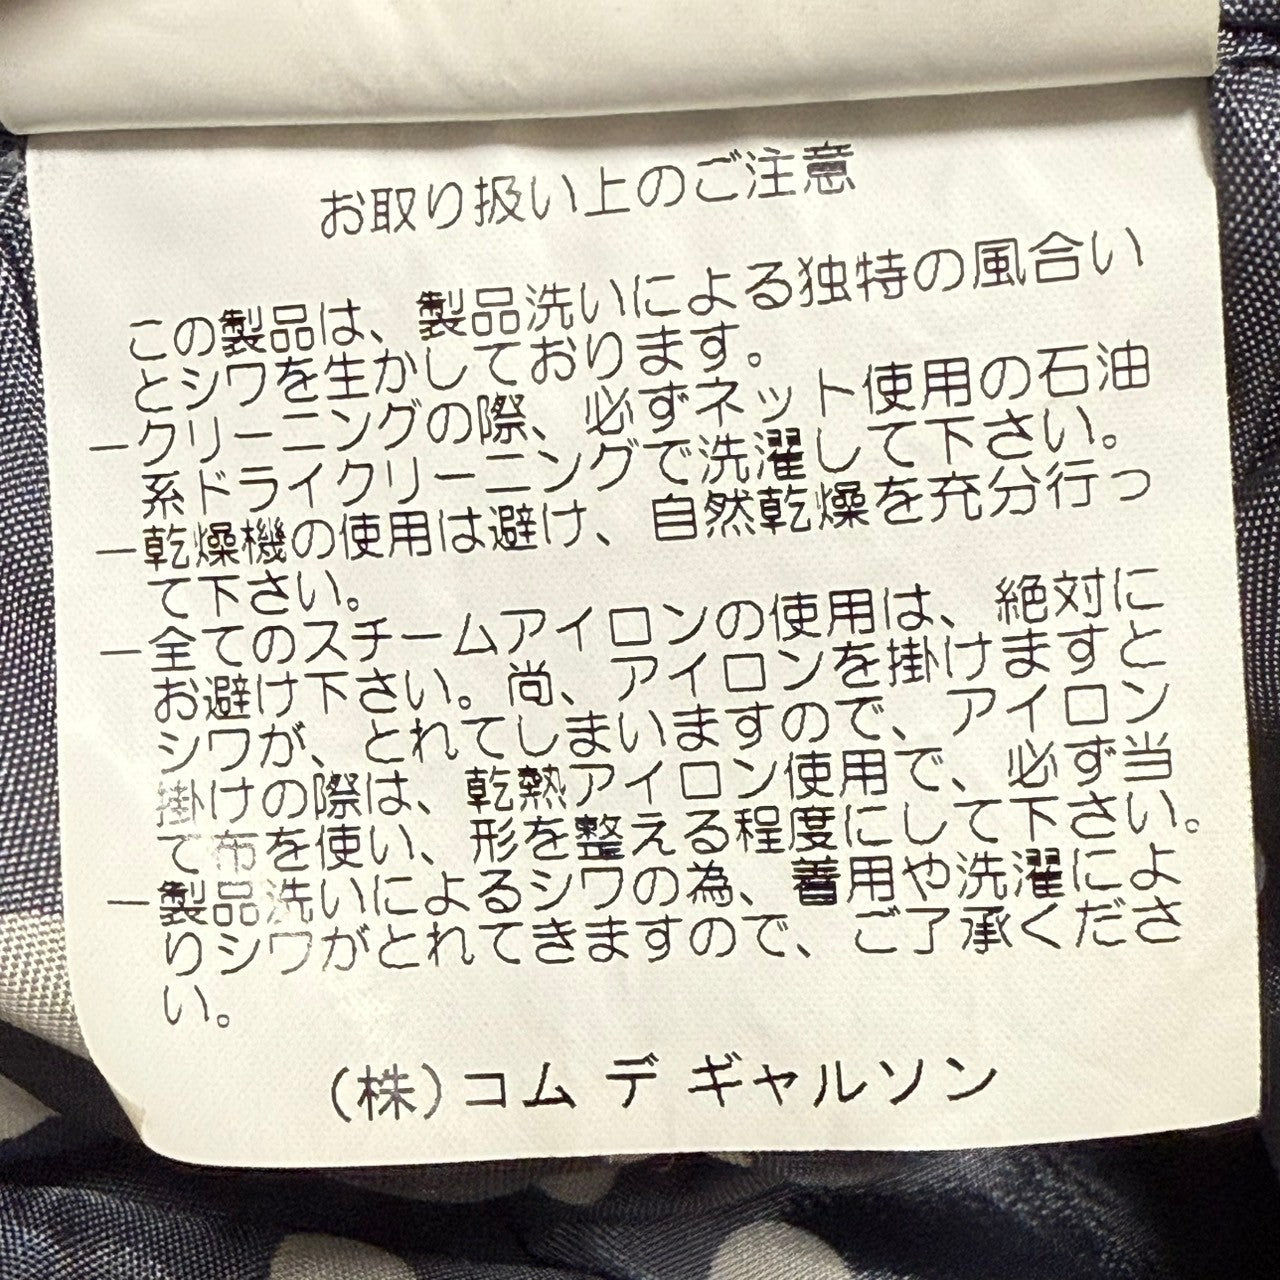 お取り扱い上のご注意
この製品は、製品洗いによる独特の風合い
とシワを生かしております。
－クリーニングの際、必ずネット使用の石油
系ドライクリーニングで洗濯して下さい。
－乾燥機の使用は避け、自然乾燥を充分行っ
て下さい。
－全てのスチームアイロンの使用は、絶対に
お避け下さい。尚、アイロンを掛けますと
シワが、とれてしまいますので、アイロン
掛けの際は、乾熱アイロン使用で、必ず当
て布を使い、形を整える程度にして下さい。
－製品洗いによるシワの為、着用や洗濯によ
りシワがとれてきますので、ご了承くださ
い。
(株)コム デ ギャルソン